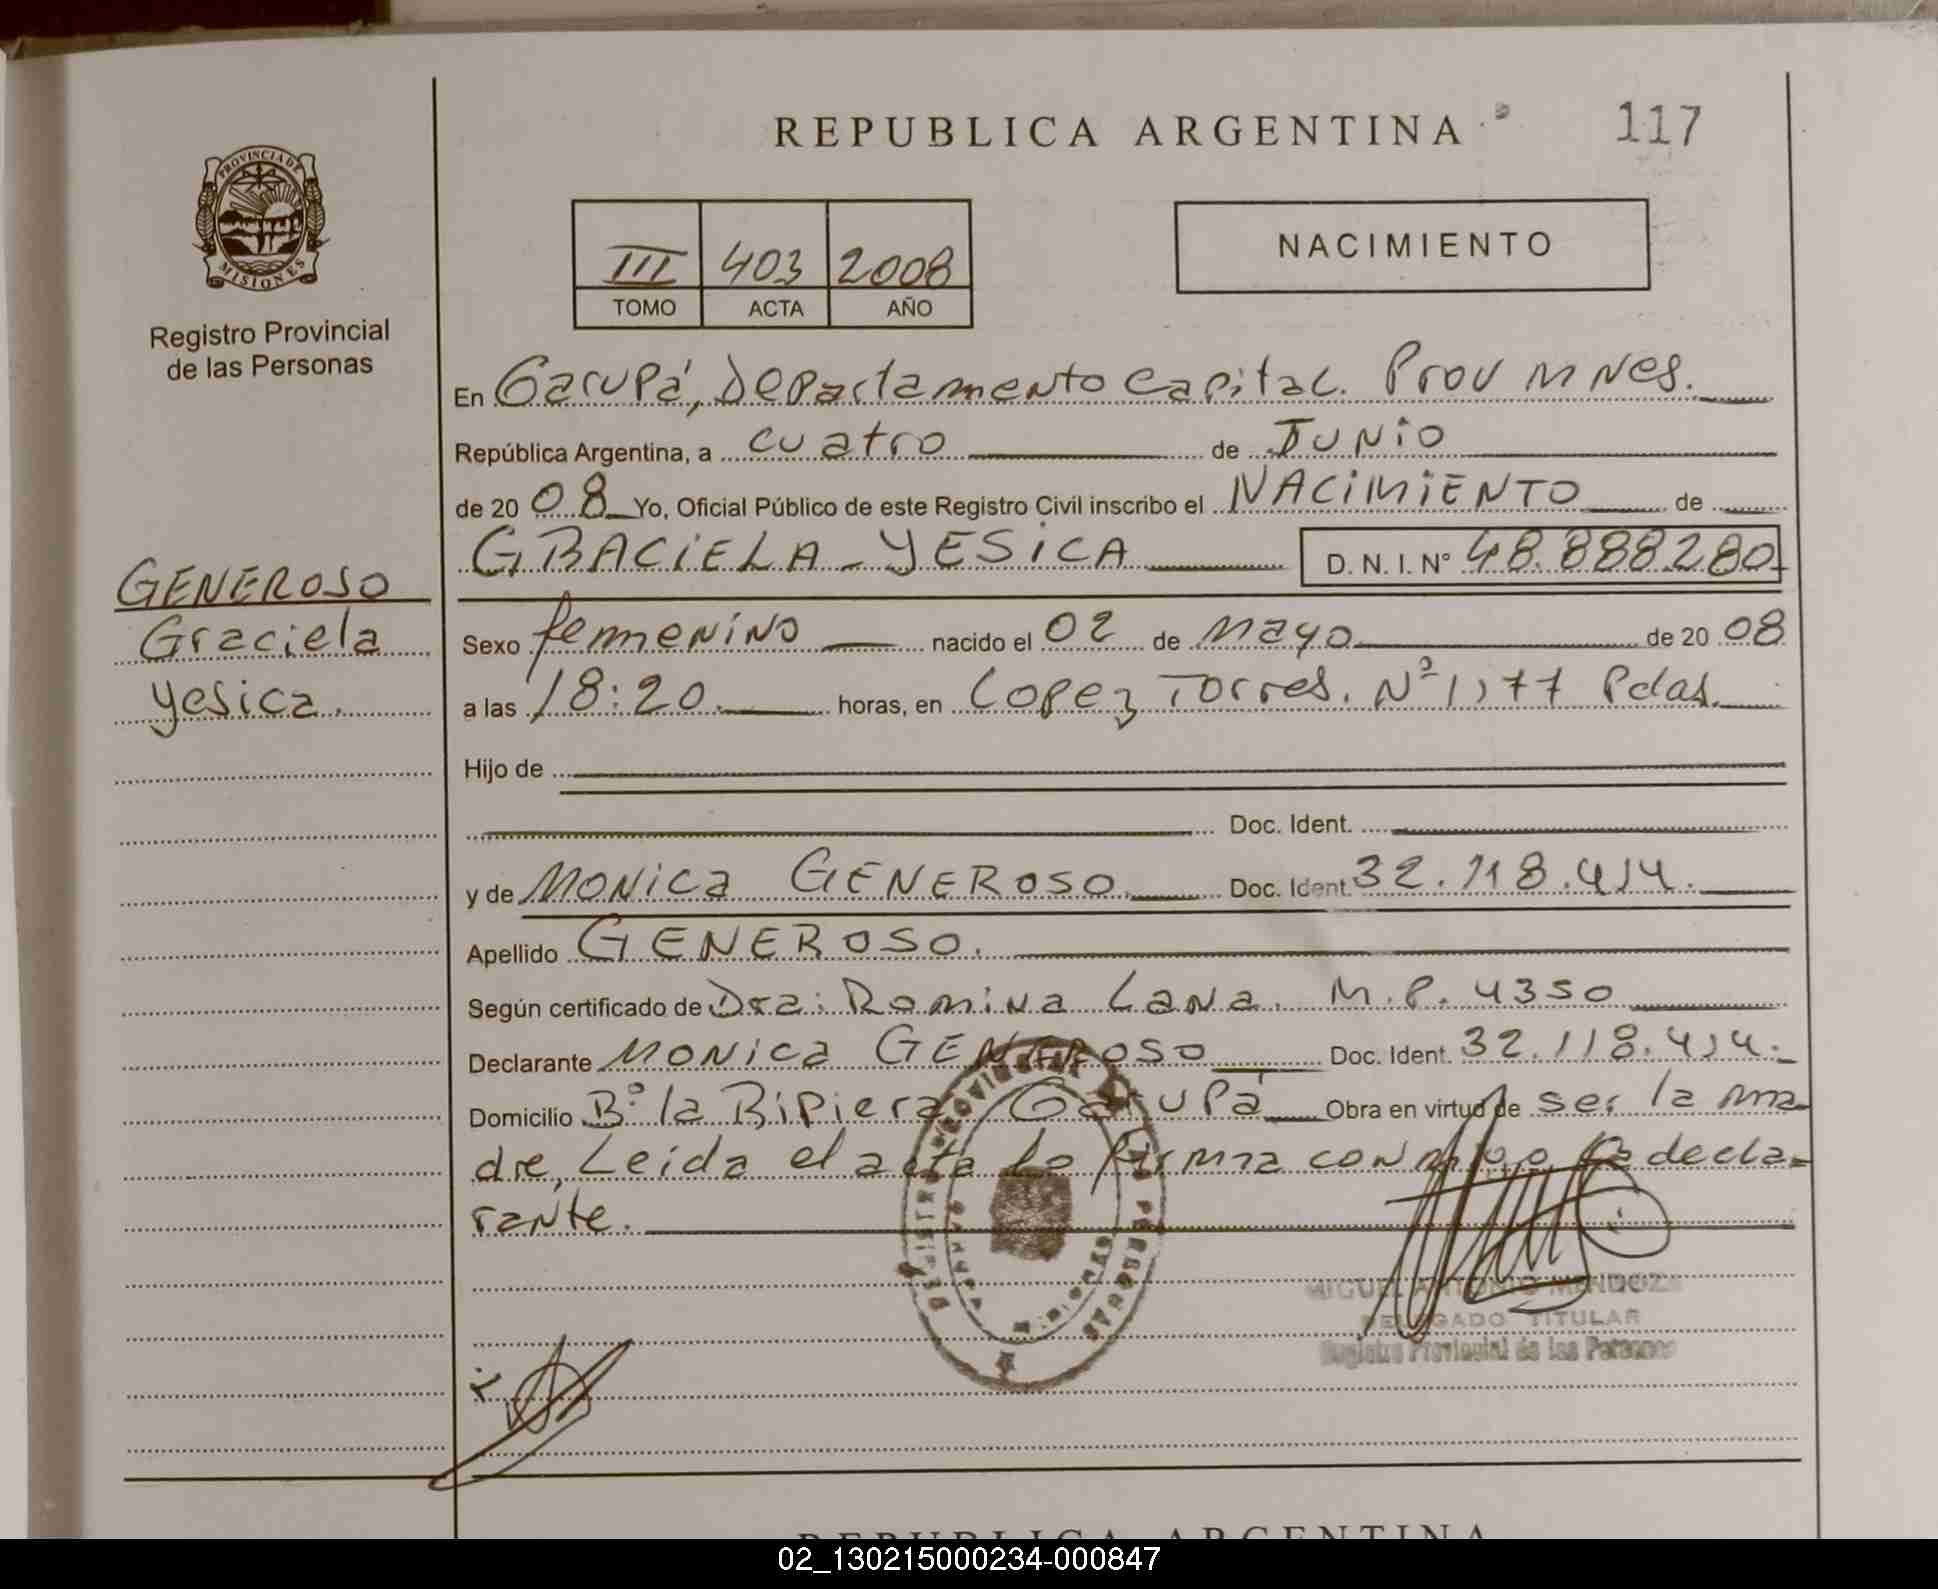 REPUBLICA ARGENTINA
117
PROVINCIA DE MISIONES
Registro Provincial
de las Personas
III 403 2008
TOMO ACTA AÑO
NACIMIENTO
En Garupá, Departamento Capital. Prov MNes.
República Argentina, a cuatro de Junio
de 2008 Yo, Oficial Público de este Registro Civil inscribo el NACIMIENTO de
GRACIELA - YESICA D. N. I. N° 48.888.280
GENEROSO
Graciela
Yesica.
Sexo femenino nacido el 02 de mayo de 2008
a las 18:20 horas, en Lopez Torres. Nº 1177 Pdas.
Hijo de
Doc. Ident.
y de MONICA GENEROSO. Doc. Ident. 32.118.414.
Apellido GENEROSO.
Según certificado de Dra: Romina Lana. M.P. 4350
Declarante MONICA GENEROSO Doc. Ident. 32.118.414.
Domicilio Bº la Ripiera Garupá Obra en virtud de ser la ma
dre, Leida el acta la firma conmigo la decla-
rante.
MIGUEL ANTONIO MENDOZA
DELEGADO TITULAR
Registro Provincial de las Personas
REPUBLICA ARGENTINA
02_130215000234-000847